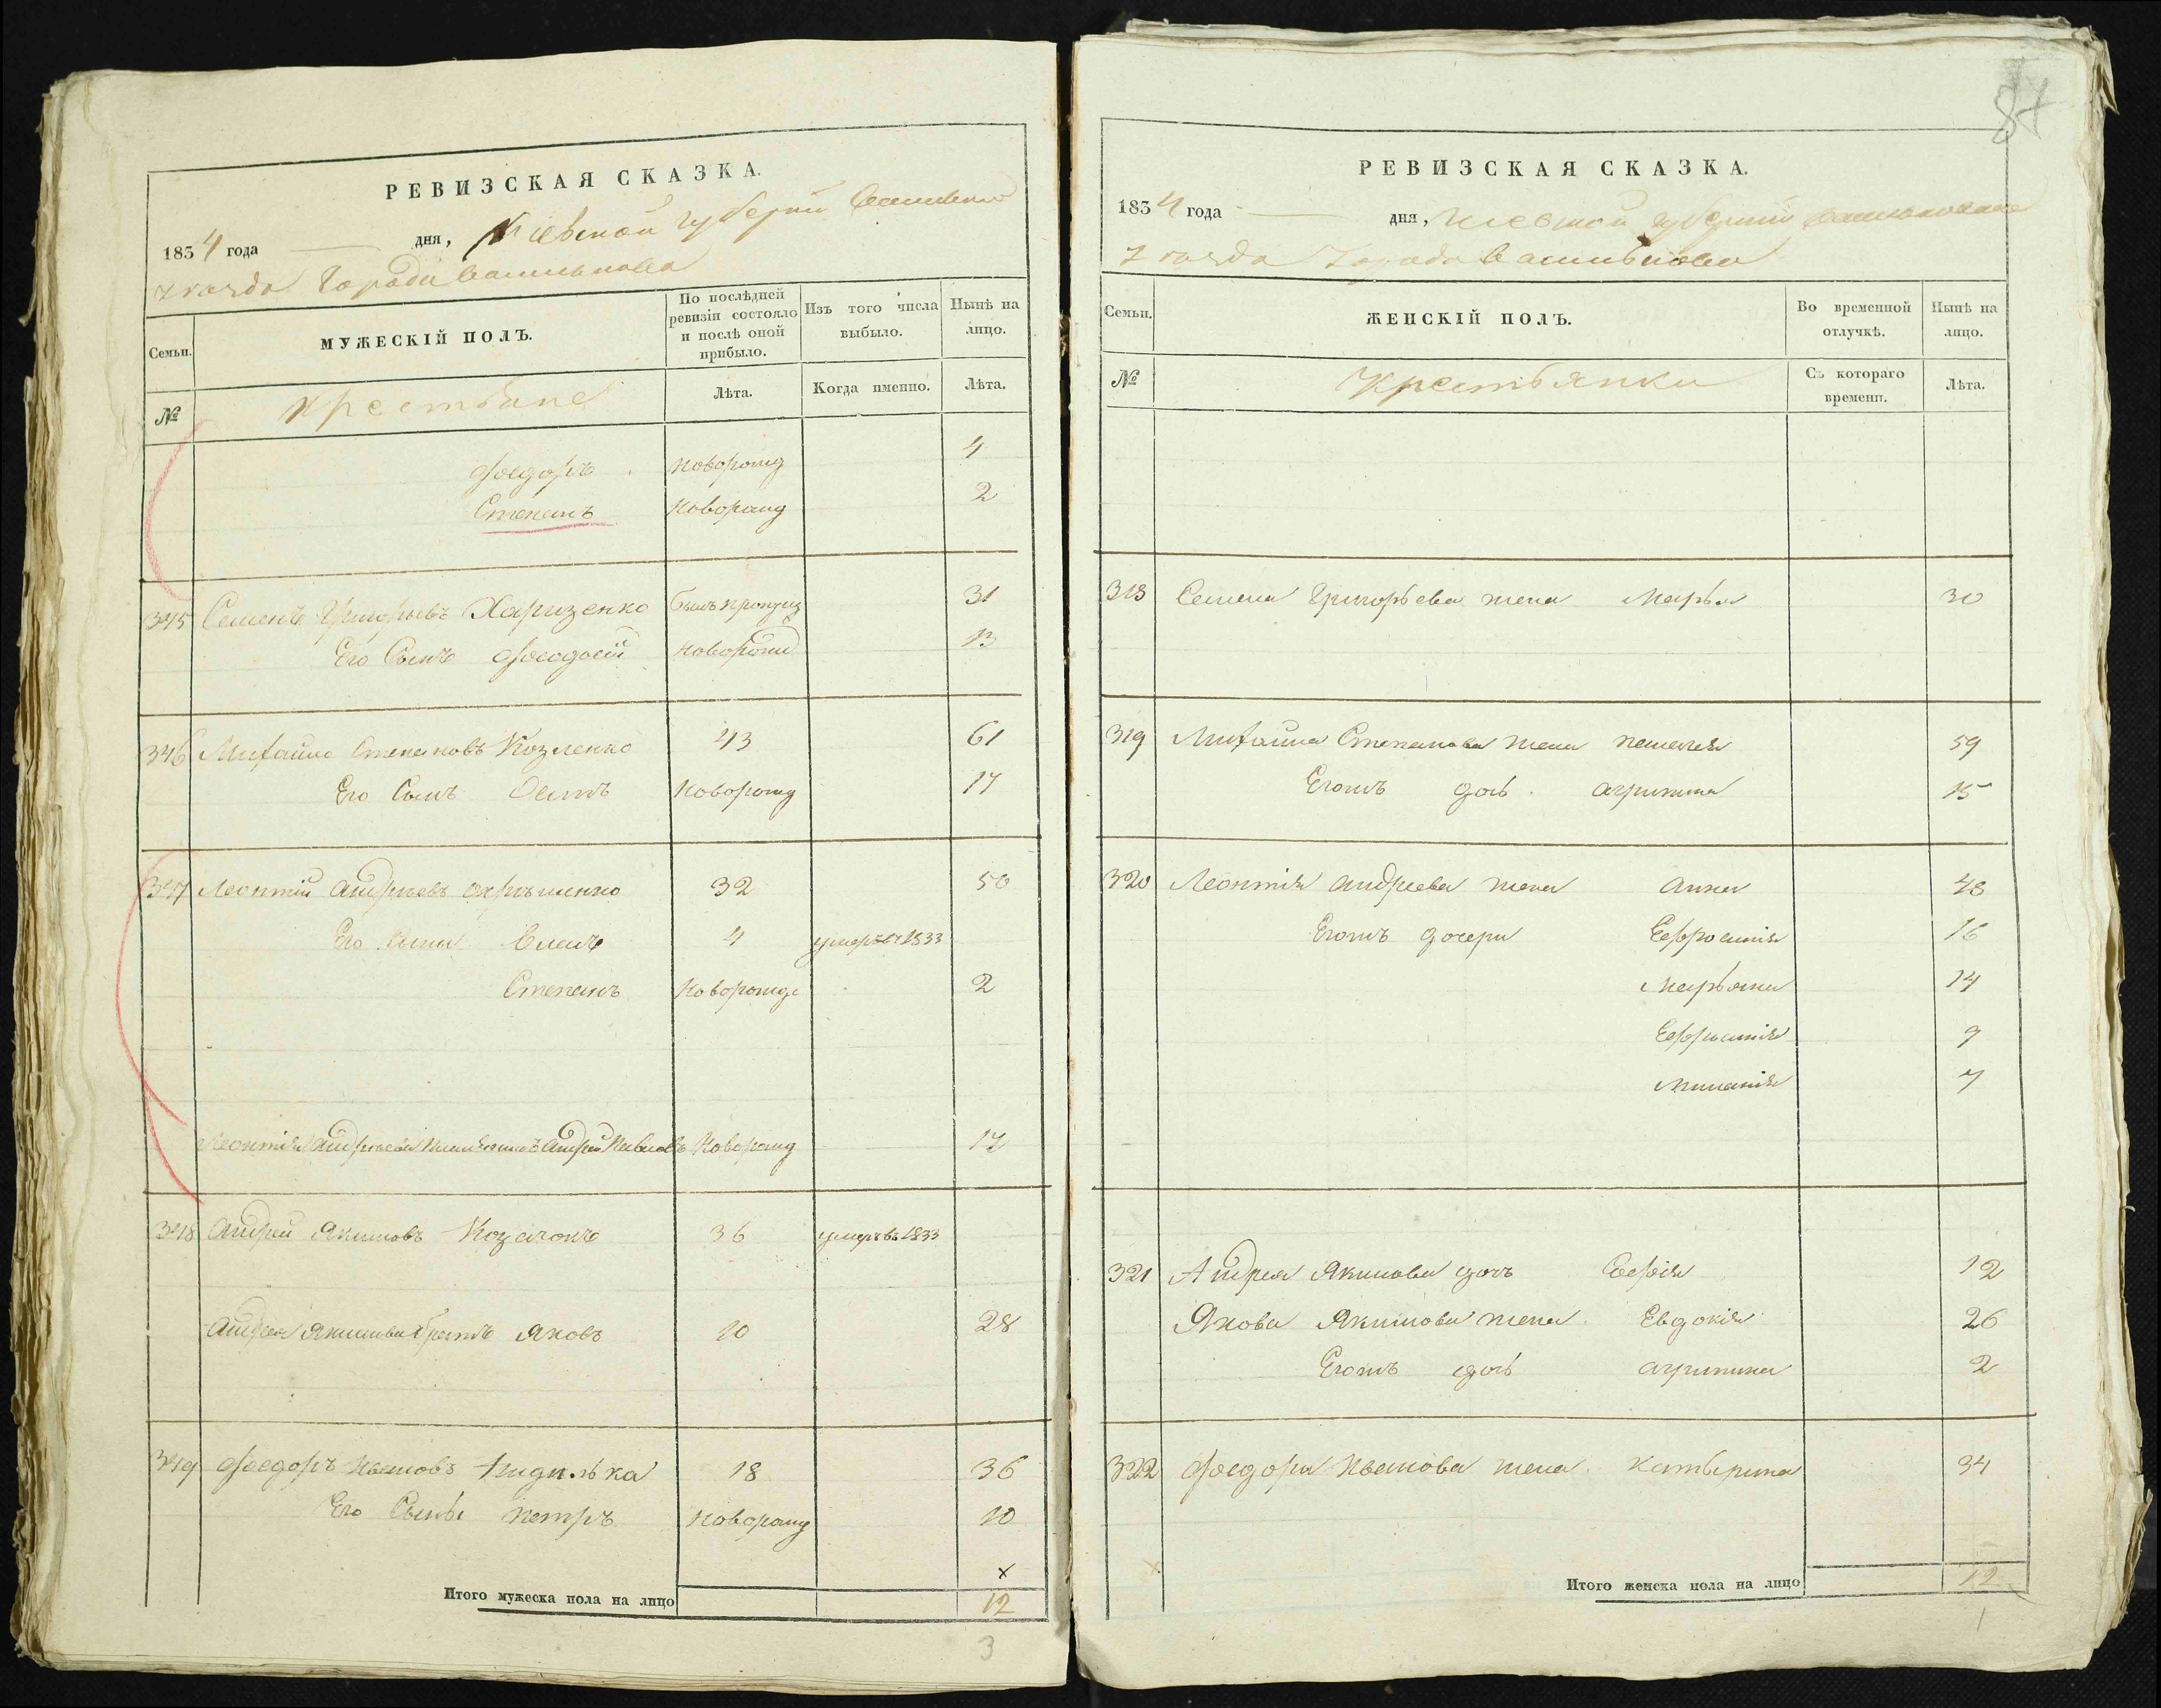 РЕВИЗСКАЯ СКАЗКА.
1834 года дня, Кіевской губерніи
уѣзда Города Василькова
Семьи.
МУЖЕСКІЙ ПОЛЪ.
По послѣдней ревизіи состояло и послѣ оной прибыло.
Изъ того числа выбыло.
Нынѣ на лицо.
№
Крестьяне
Лѣта.
Когда именно.
Лѣта.
Фёедоръ новорожд 4
Степанъ новорожд 2
345 Семенъ Григорьевъ 31
Его Сынъ Феодосій новорожд 13
346 Михайло Степановъ Козленко 43 61
Его Сынъ новорожд 17
347 Леонтій Андреевъ 32 50
Его 4 умеръ въ 1833
Степанъ новорожде 2
Леонтія Андреева Андрей новорожд 17
348 Андрей Якимовъ 36 умеръ въ 1833
Андрея Якимова братъ Яковъ 10 28
349 Феодоръ Ивановъ 18 36
Его Сынъ Петръ новорожд 10
х
Итого мужеска пола на лицо 12
3
84
РЕВИЗСКАЯ СКАЗКА.
1834 года дня, Кіевской губерніи
уѣзда Города Василькова
Семьи.
ЖЕНСКІЙ ПОЛЪ.
Во временной отлучкѣ.
Нынѣ на лицо.
№
Крестьянки
Съ котораго времени.
Лѣта.
318 Семена Григорьева жена Марья 30
319 Михайла Степанова жена 59
Егожъ дочь Агрипина 15
320 Леонтія Андреева жена Анна 48
Егожъ дочери Ефросинія 16
Марьяна 14
Ефросинія 9
7
321 Андрея Якимова дочь Софія 12
Якова Якимова жена Евдокія 26
Егожъ дочь Агрипина 2
322 Феодора Иванова жена Катерина 34
Итого женска пола на лицо 12
1